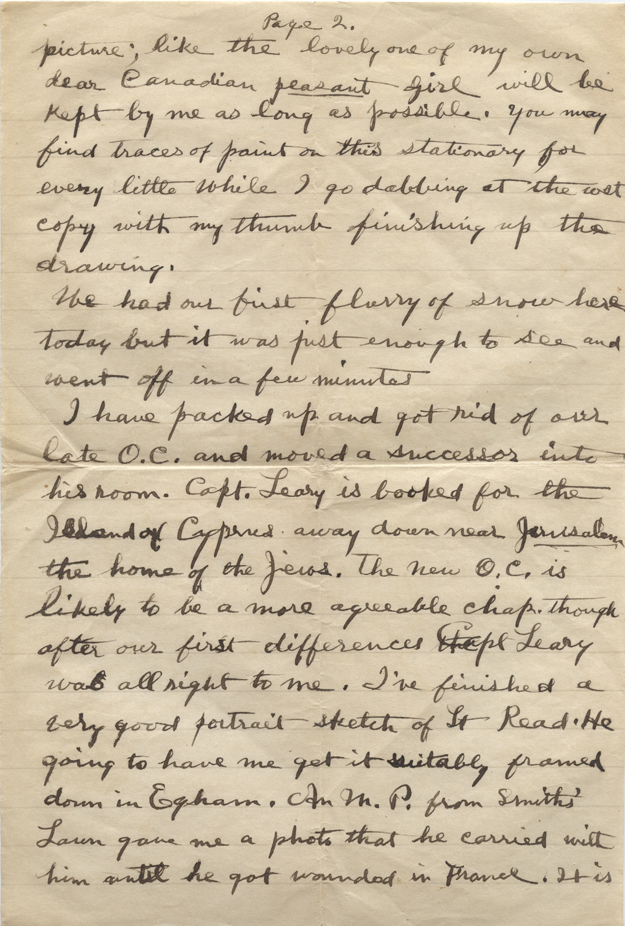 Page 2.
picture; like the lovely one of my own
dear Canadian peasant girl will be
kept by me as long as possible. You may
find traces of paint on this stationary for
every little while I go dabbing at the wet
copy with my thumb finishing up the
drawing.
We had our first flurry of snow here
today but it was just enough to see and
went off in a few minutes
I have packed up and got rid of our
late O.C. and moved a successor into
his room. Capt. Leary is booked for the
Island of Cyprus away down near Jerusalem
the home of the Jews. The new O.C. is
likely to be a more agreeable chap. though
after our first differences Capt Leary
was all right to me. I've finished a
very good portrait sketch of Lt Read. He
going to have me get it suitably framed
down in Egham. An M.P. from Smiths'
Lawn gave me a photo that he carried with
him until he got wounded in France. It is